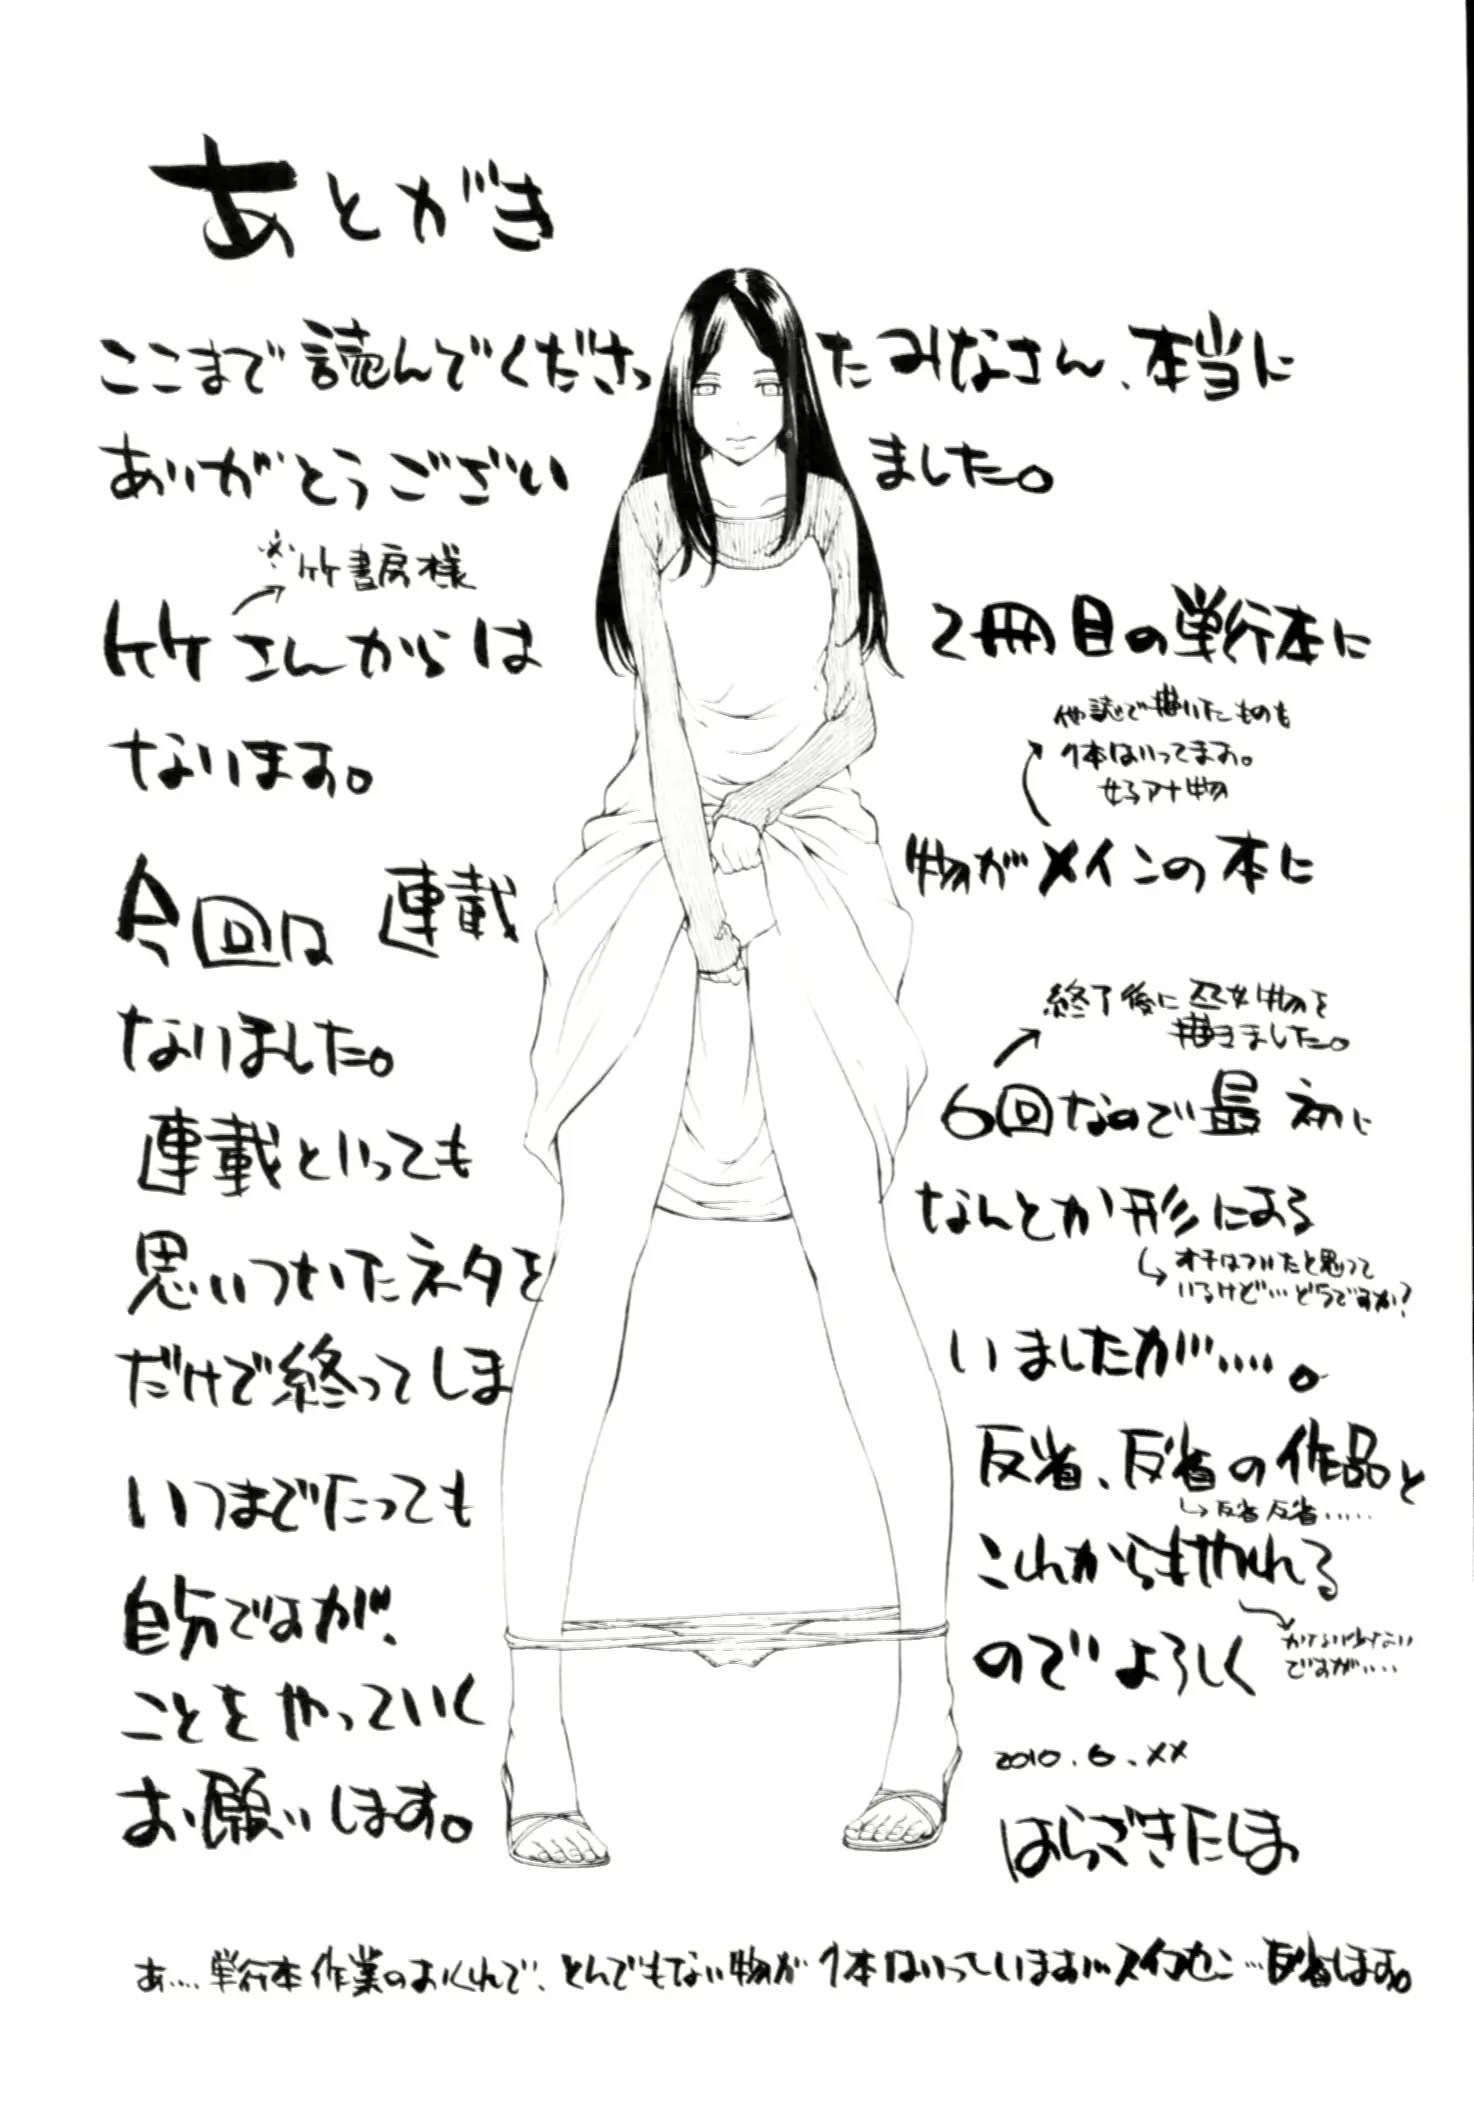 あとがき
ここまで読んでくださったみなさん、本当に
ありがとうございました。
※竹書房様
竹さんからは2冊目の単行本に
なります。
他誌で描いたものも
1本はいってます。
女子アナ物
今回は連載物がメインの本に
なりました。
終了後に巫女物を
描きました。
連載といっても6回なので最初に
思いついたネタをなんとか形にする
オチはついたと思って
いるけど…どうですか?
だけで終ってしまいましたが……。
いつまでたっても反省、反省の作品と
反省反省……
自分ですが、これからもやれる
ことをやっていくのでよろしく
かなり少ない
ですが……
お願いします。
2010.6.××
はらざきたくま
あ……単行本作業のおくれで、とんでもない物が1本はいっています…スイマセン…反省します。